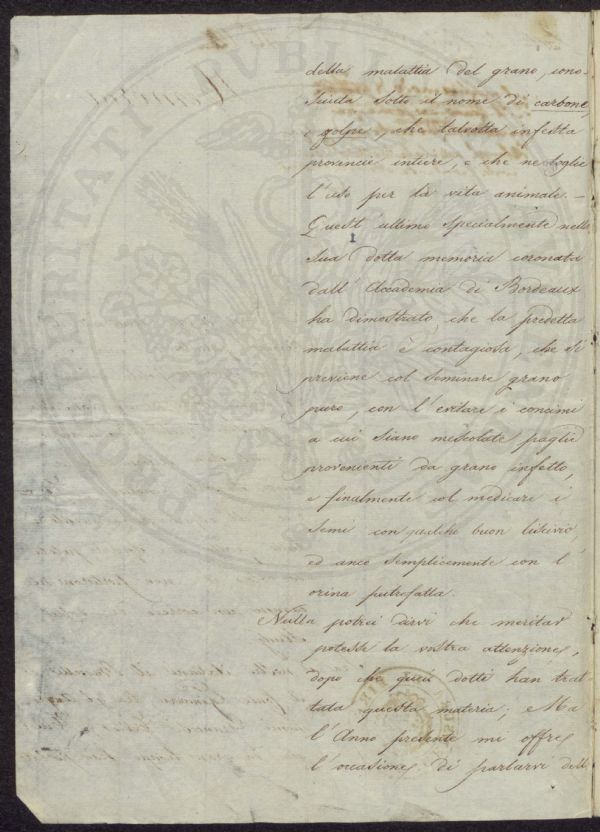 della malattia del grano, cono-
sciuta sotto il nome di carbone,
e golpe, che talvolta infesta
provincie intiere, e che ne toglie
l'uso per la vita animale. -
Quest'ultimo specialmente nella
1
sua dotta memoria coronata
dall'Accademia di Bordeaux
ha dimostrato, che la predetta
malattia è contagiosa, che si
previene col seminare grano
puro, con l'evitare i concimi
a cui siano mescolate paglie
provenienti da grano infetto,
e finalmente col medicare i
semi con qualche buon liscivio,
ed anco semplicemente con l'
orina putrefatta.
Nulla potrei dirvi che meritar
potesse la vostra attenzione,
dopo che quei dotti han trat-
tata questa materia; Ma
l'Anno presente mi offre
l'occasione di parlarvi dell'